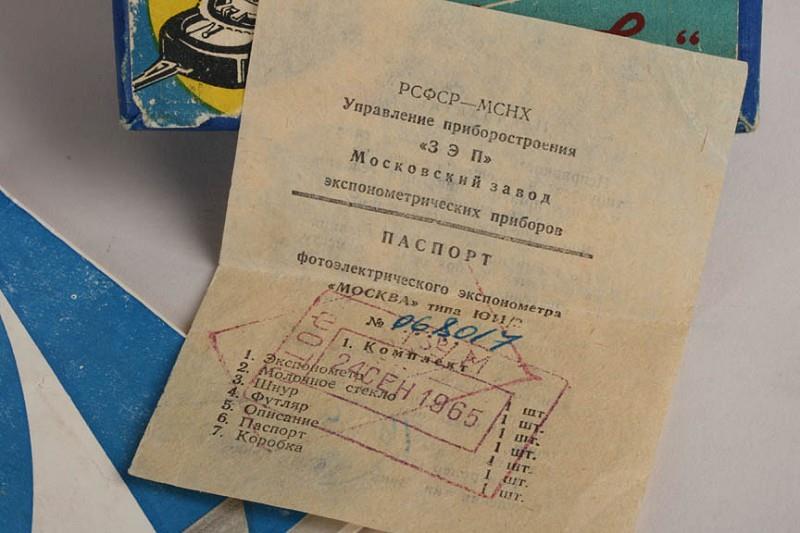 “
РСФСР—МСНХ
Управление приборостроения
«З Э П»
Московский завод
экспонометрических приборов
ПАСПОРТ
фотоэлектрического экспонометра
«МОСКВА» типа
№ 068017
1. Комплект
24 СЕН 1965
1. Экспонометр 1 шт.
2. Молочное стекло 1 шт.
3. Шнур 1 шт.
4. Футляр 1 шт.
5. Описание 1 шт.
6. Паспорт 1 шт.
7. Коробка 1 шт.